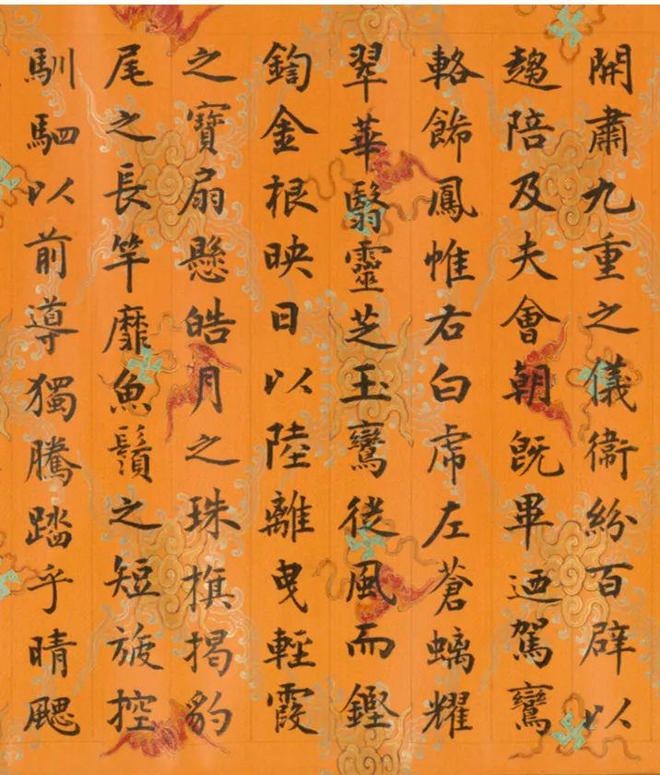 開肅九重之儀衛紛百辟以
趨陪及夫會朝既畢迺駕鸞
輅飾鳳帷右白虎左蒼螭耀
翠華翳靈芝玉鸞從風而鏗
鍧金根映日以陸離曳輕霞
之寶扇懸皓月之珠旗揭豹
尾之長竿靡魚鬚之短控
馴駟以前導獨騰踏乎晴飔